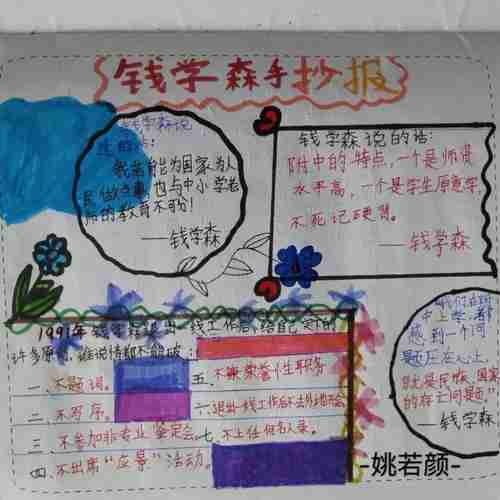 钱学森手抄报
钱学森说
过的话：
我若能为国家为人
民做点事，也与中小学老
师的教育不可分！
——钱学森
钱学森说的话：
附中的特点，一个是师资
水平高，一个是学生愿意学，
不死记硬背。
——钱学森
我们在附
中上学，都
感到一个问
题压在心上，
就是民族、国家
的存亡问题。”
——钱学森
1991年钱学森退出一线工作后，给自己定下的
许多原则，谁说情都不能破：
一、不题词。
二、不写序。
三、不参加非专业鉴定会。
四、不出席“应景”活动。
五、不兼荣誉性职务
六、退出一线工作后不去外地开会
七、不上任何名人录。
-姚若颜-